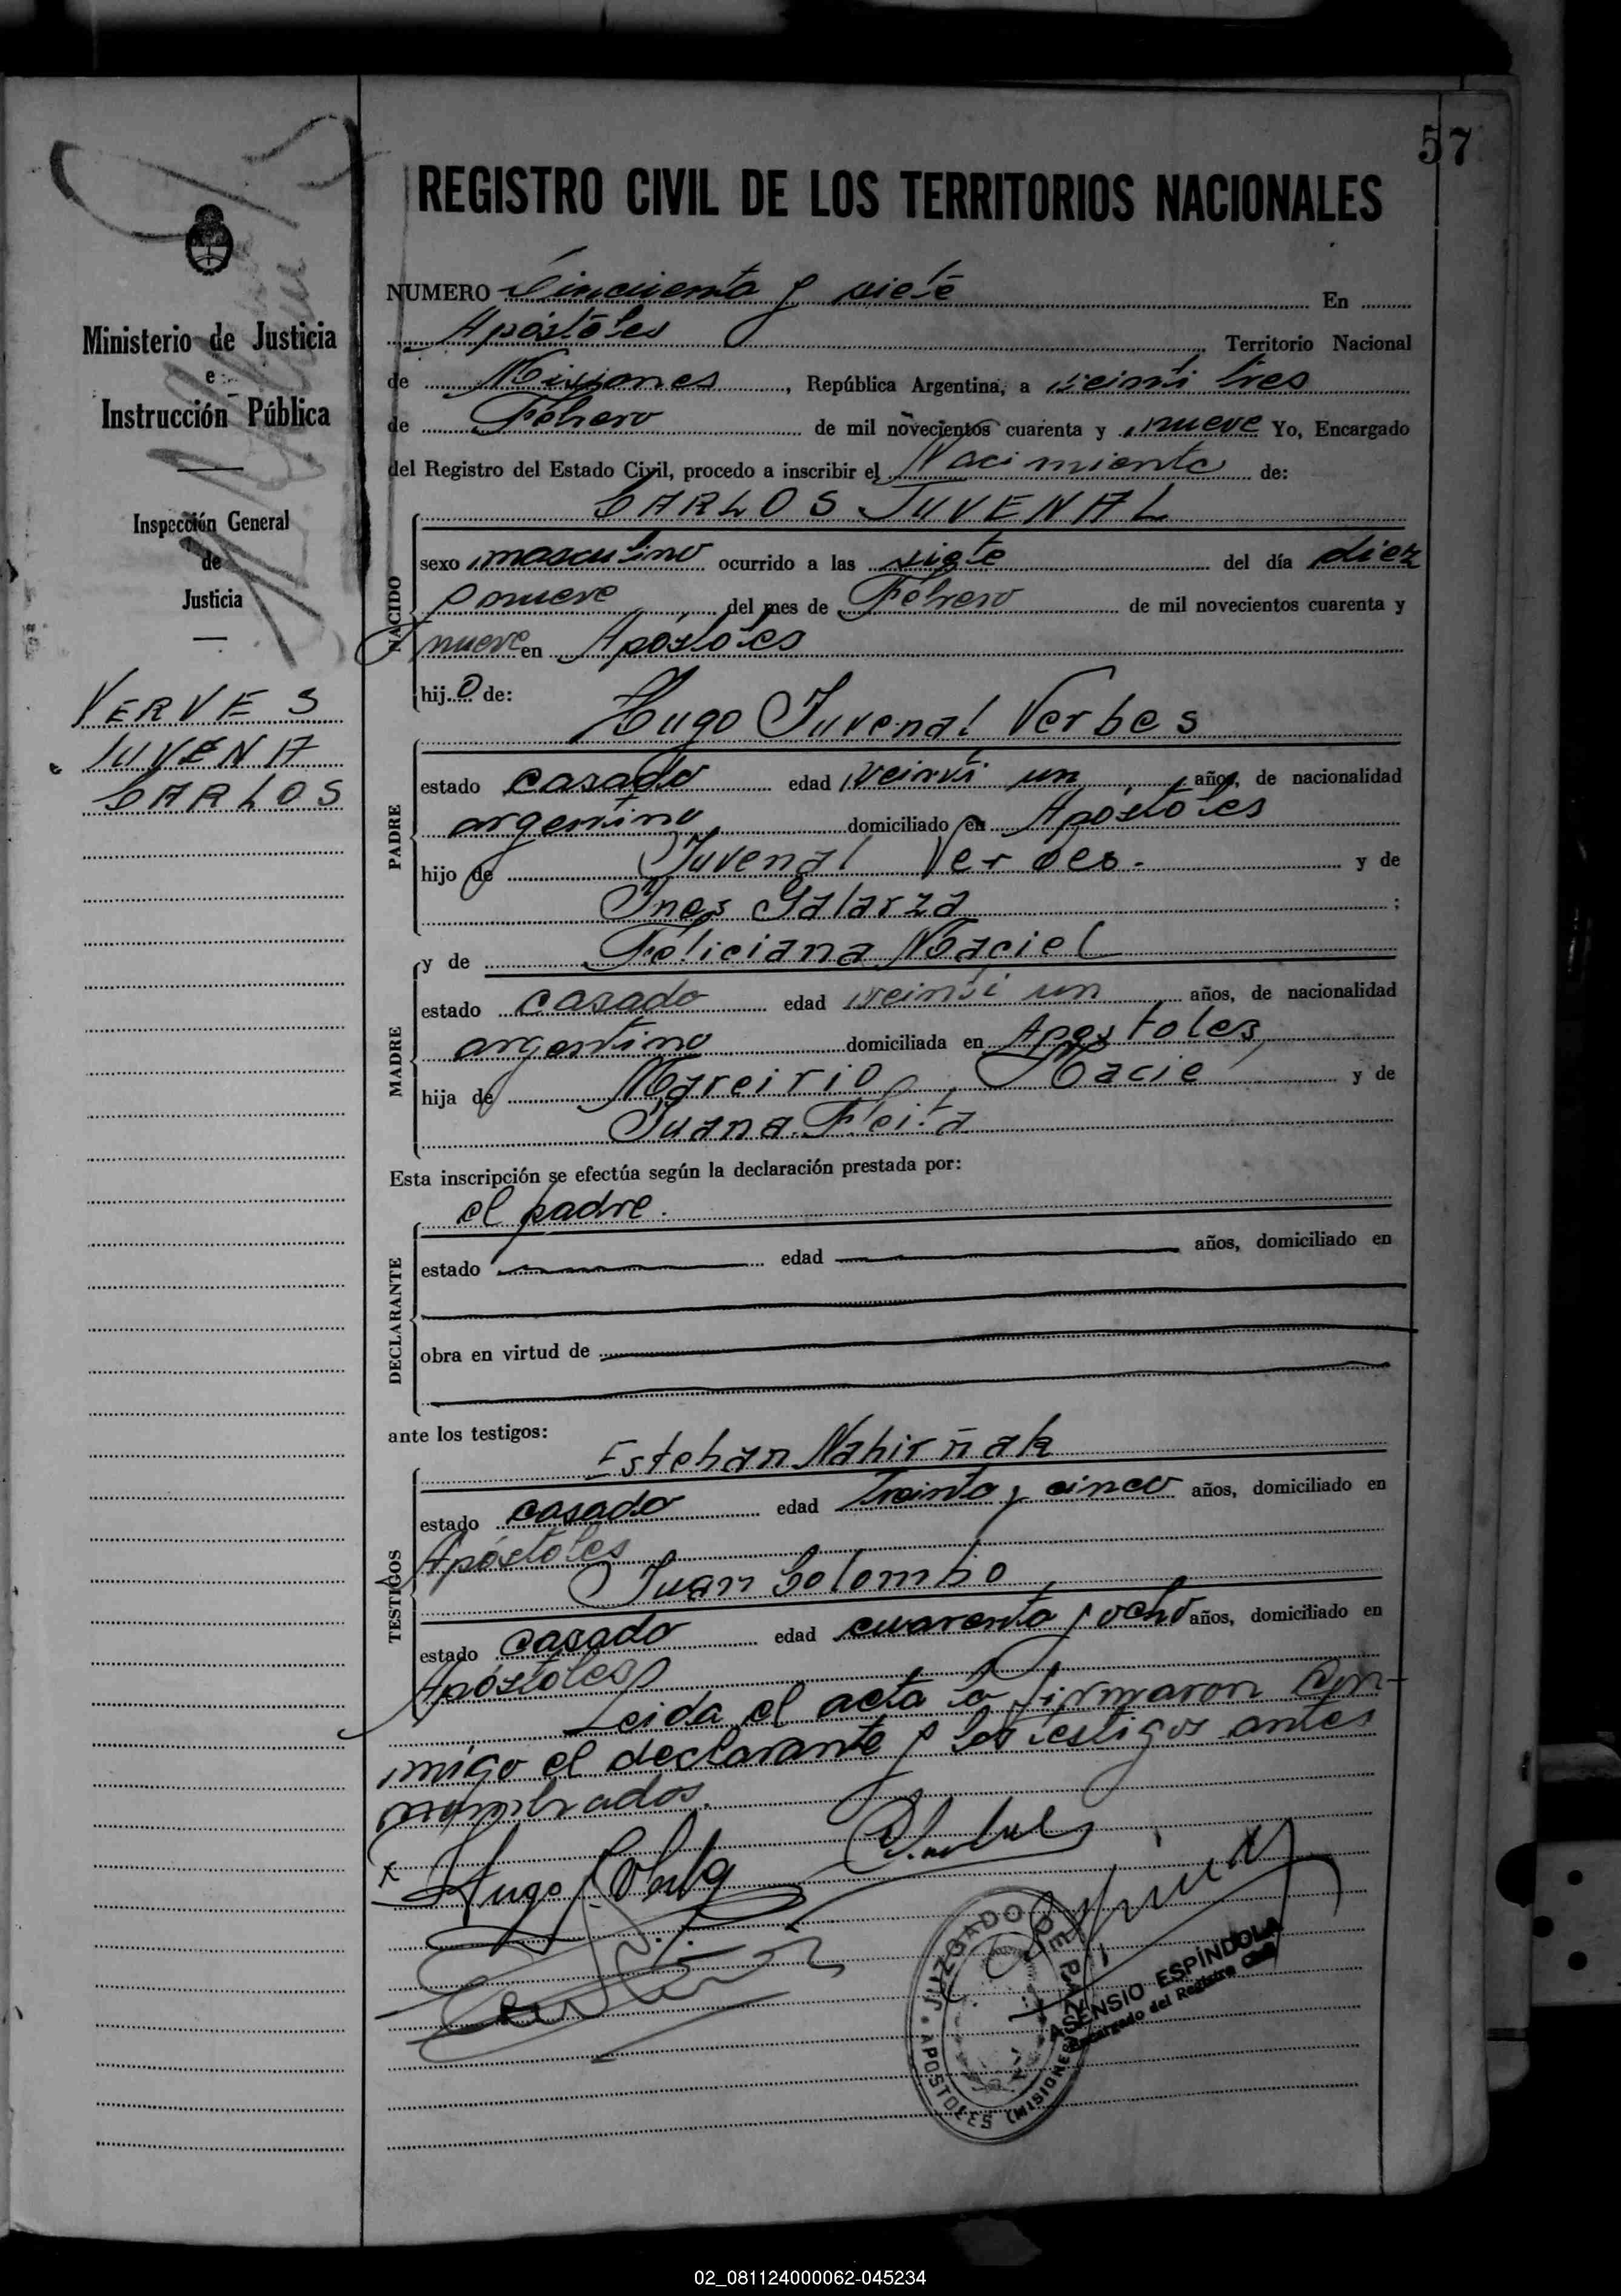 57
REGISTRO CIVIL DE LOS TERRITORIOS NACIONALES
NUMERO Cincuenta y siete En
Apóstoles Territorio Nacional
de Misiones, República Argentina, a veinti tres
de Febrero de mil novecientos cuarenta y nueve Yo, Encargado
del Registro del Estado Civil, procedo a inscribir el Nacimiento de:
CARLOS JUVENAL
NACIDO
sexo masculino ocurrido a las siete del día diez
y nueve del mes de Febrero de mil novecientos cuarenta y
nueve en Apóstoles
hijo de: Hugo Juvenal Verbes
PADRE
estado casado edad veinti un años, de nacionalidad
argentino domiciliado en Apóstoles
hijo de Juvenal Verbes. y de
Ines Galarza ;
y de Feliciana Maciel
MADRE
estado casado edad veinti un años, de nacionalidad
argentino domiciliada en Apostoles
hija de Macie y de
Juana
Esta inscripción se efectúa según la declaración prestada por:
el padre.
DECLARANTE
estado edad años, domiciliado en
obra en virtud de
ante los testigos:
Esteban Nahirñak
TESTIGOS
estado casado edad treinta y cinco años, domiciliado en
Apóstoles
Juan Colombo
estado casado edad cuarenta y ocho años, domiciliado en
Apóstoles
Leida el acta la firmaron con-
migo el declarante y los testigos antes
nombrados.
Hugo
JUZGADO DE PAZ
APOSTOLES (MISIONES)
ASENSIO ESPÍNDOLA
Encargado del Registro Civil
Ministerio de Justicia
e
Instrucción Pública
Inspección General
de
Justicia
VERVES
JUVENA
CARLOS
02_081124000062-045234